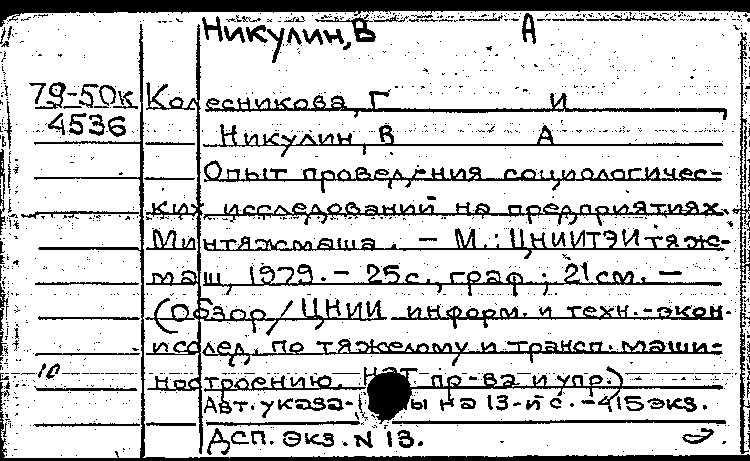 Никулин, В А
79-50к Колесникова, Г И
4536 Никулин, В А
Опыт проведения социологичес-
ких исследований на предприятиях
Минтяжмаша. – М.: ЦНИИТЭИтяж-
маш, 1979. – 25с., граф.; 21см. –
(Обзор/ЦНИИ информ. и техн.-экон.
исслед. по тяжелому и трансп. маши-
10 ностроению. НОТ пр-ва и упр.)
Авт. указа- ны на 13-й с. – 415экз.
Дсп. экз. N 13.